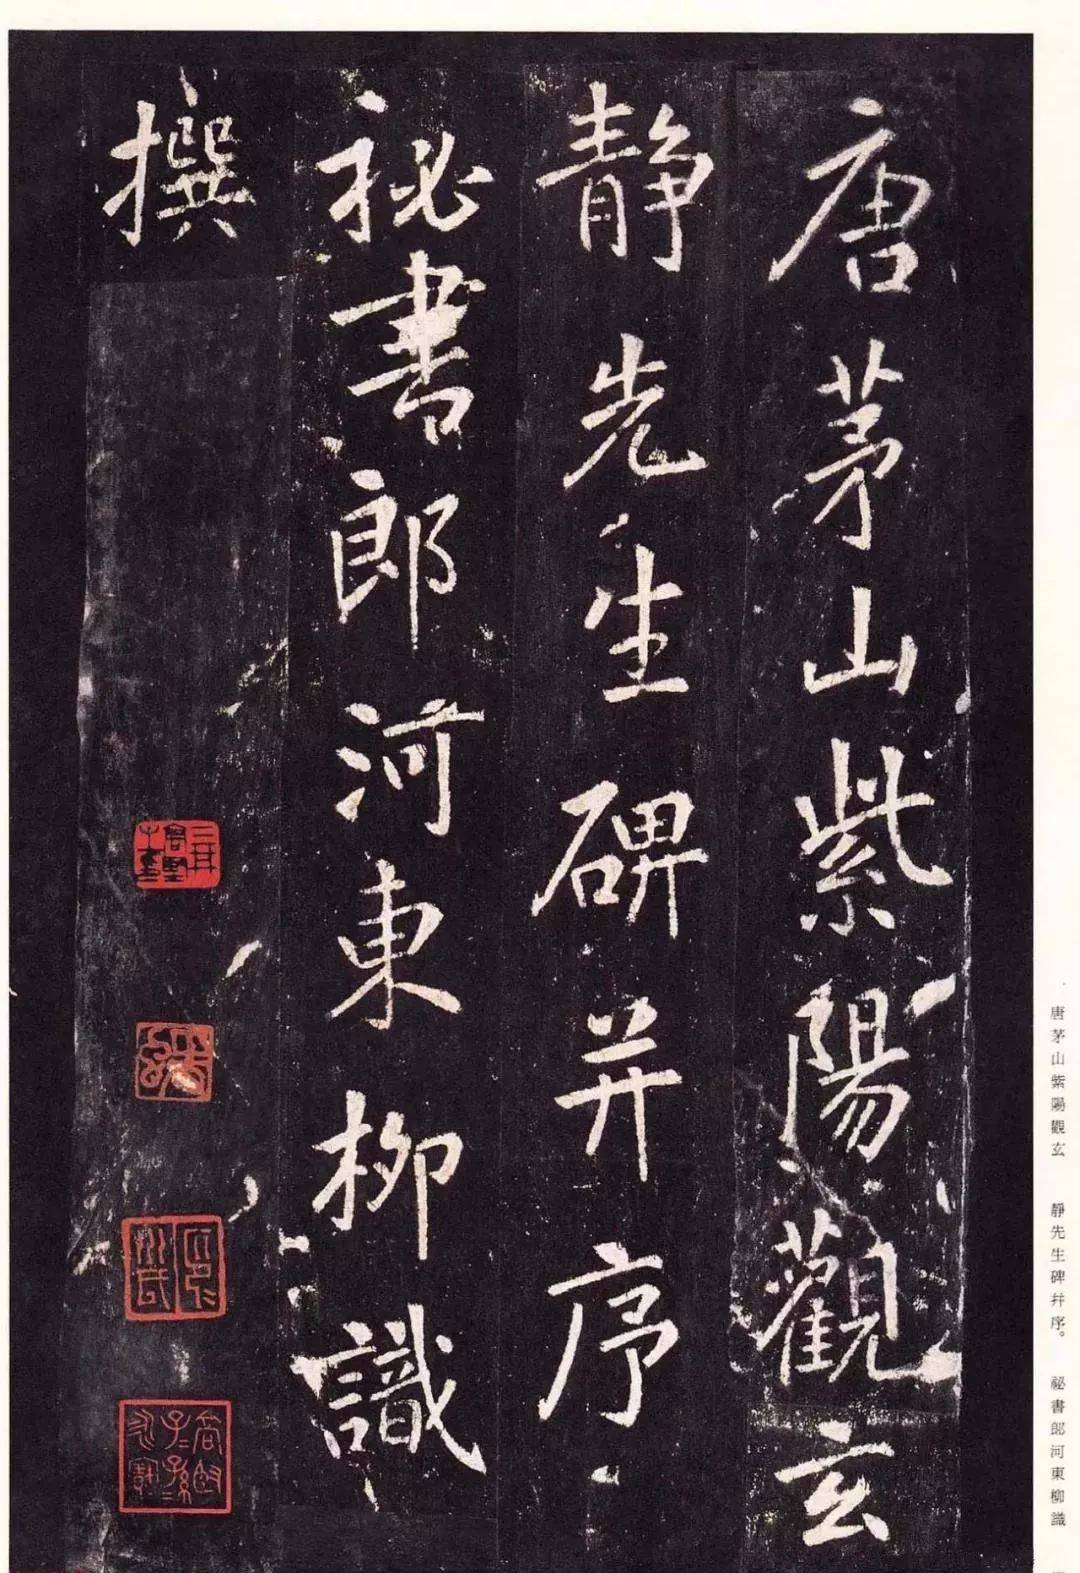 唐茅山紫陽觀玄
靜先生碑并序
祕書郎河東柳識
撰
唐茅山紫陽觀玄 靜先生碑并序。 祕書郎河東柳識